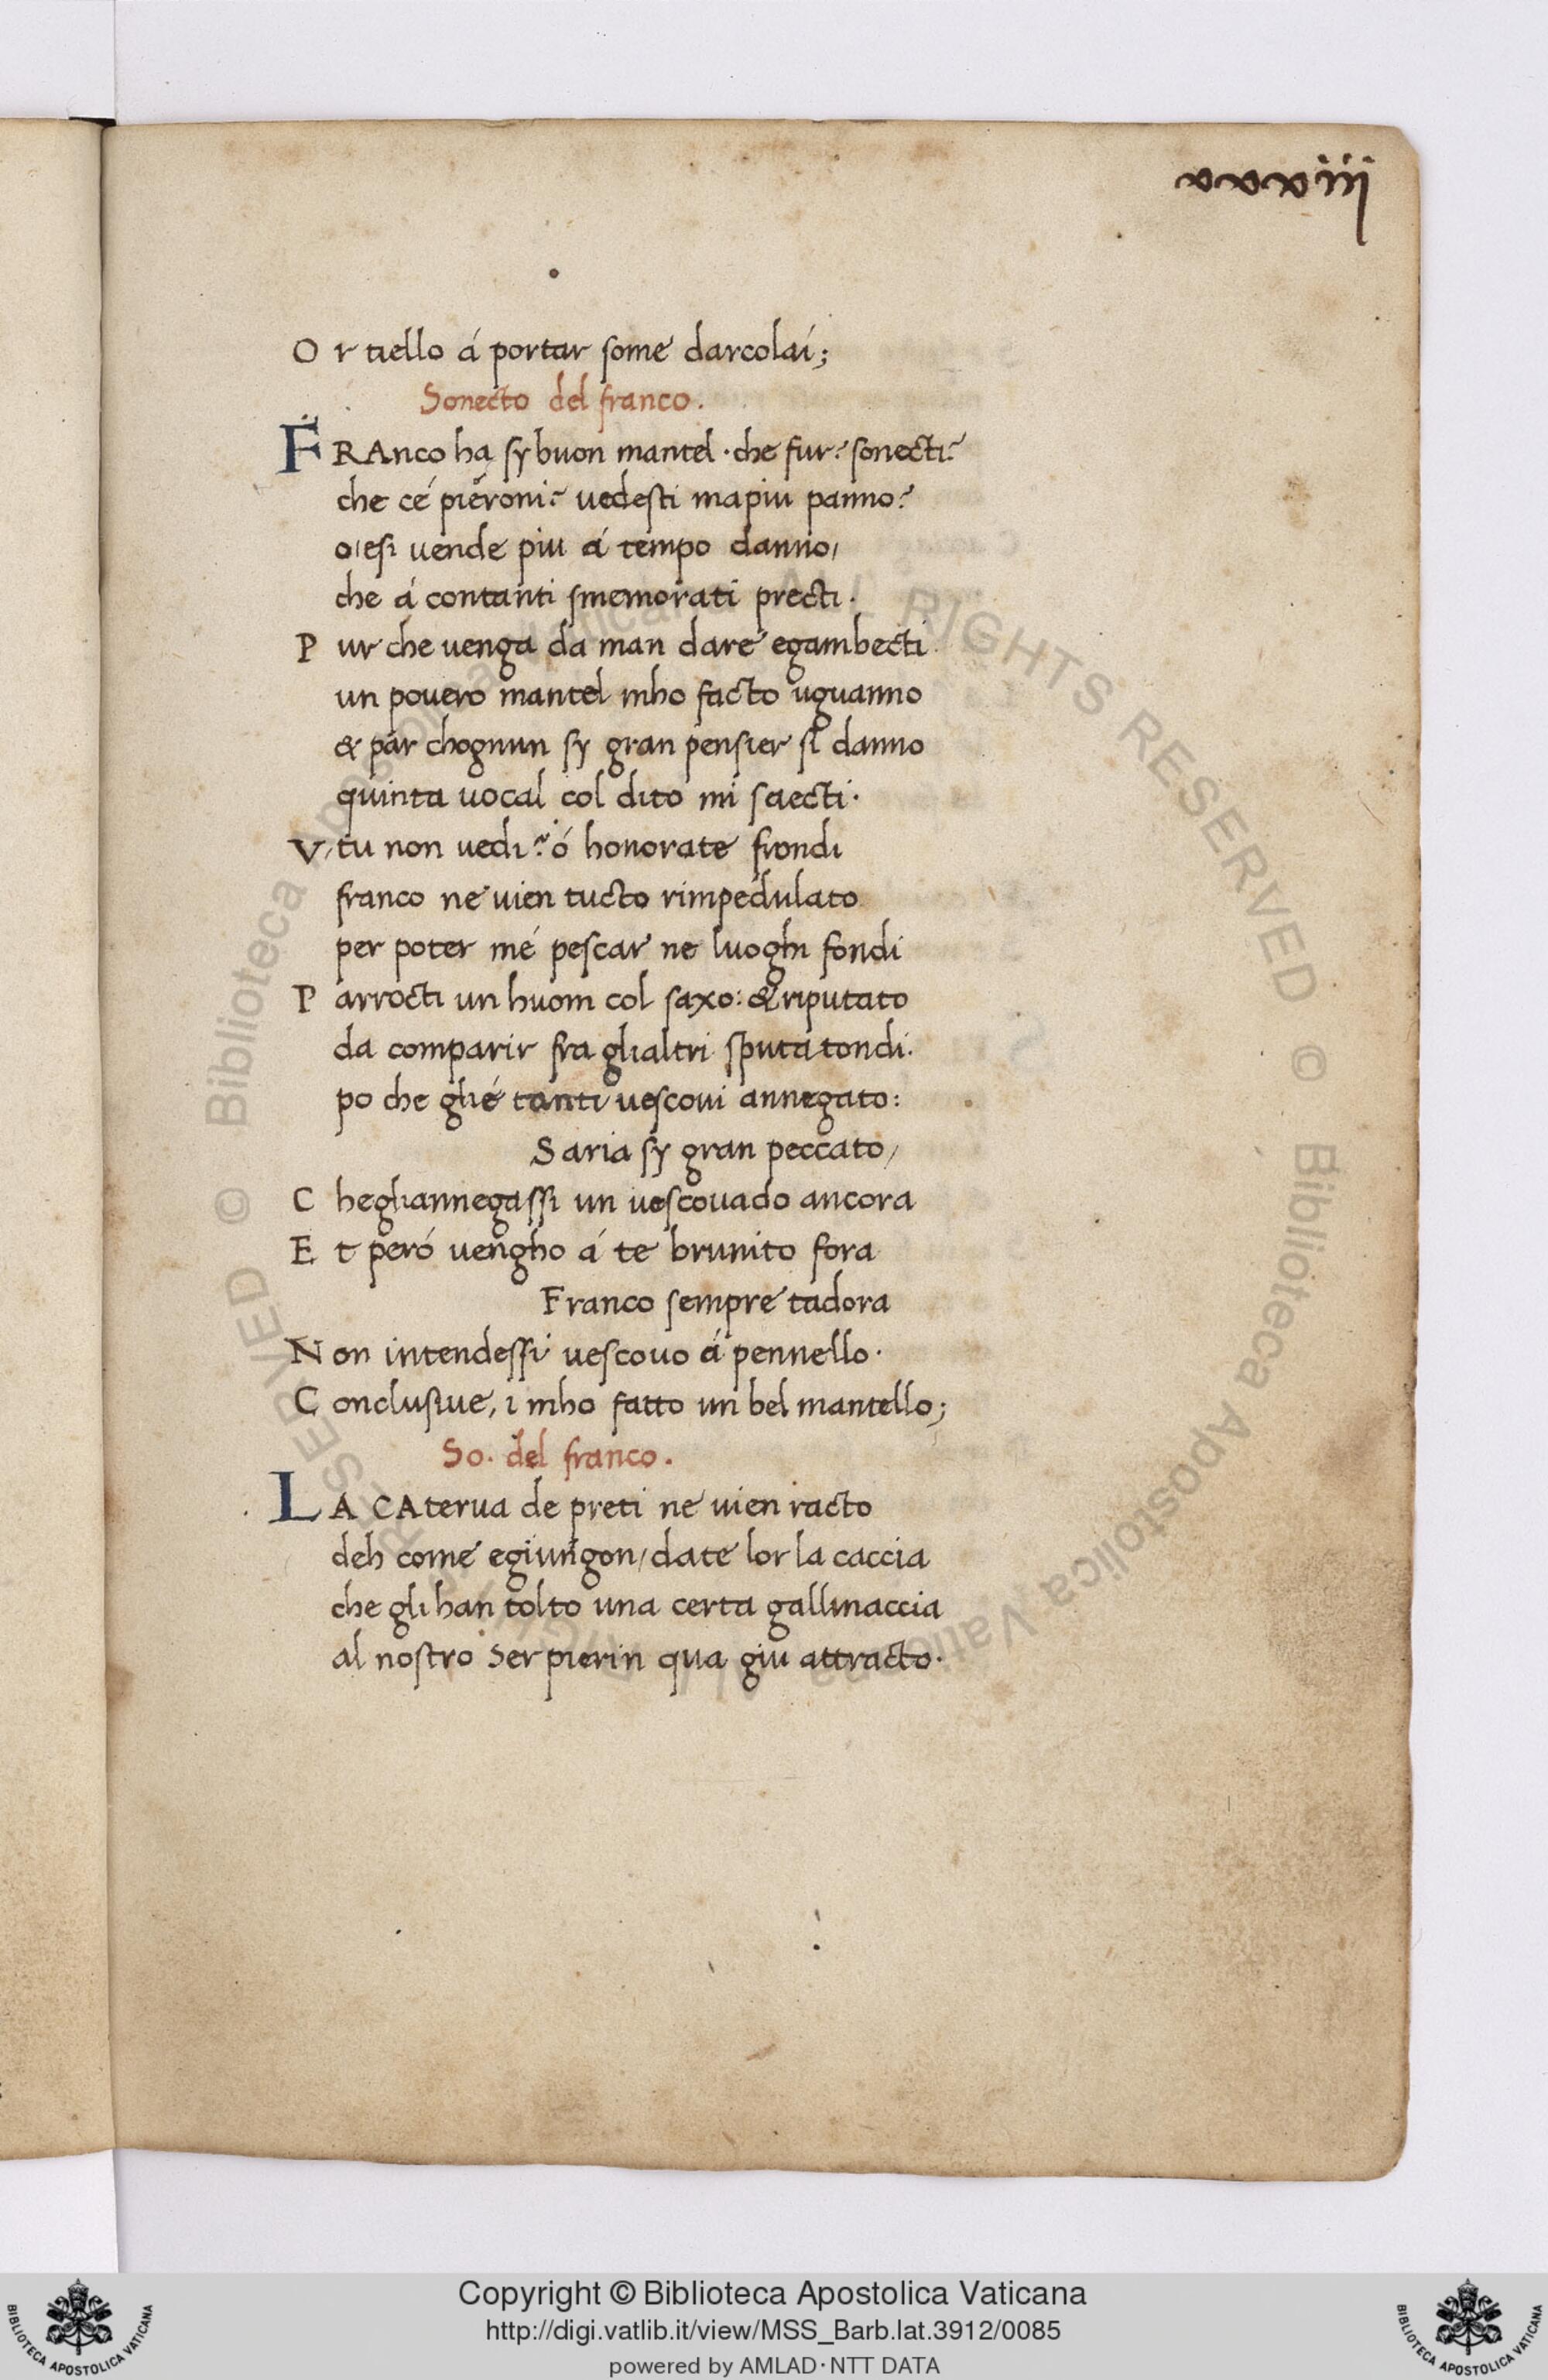 xxxiii
O r tiello á portar some darcolai;
Sonecto del franco.
FRAnco ha sy buon mantel · che fur? sonecti?
che cé piéroni? vedesti mapiu panno?
o/esi vende piu á tempo danno/
che á contanti smemorati precti.
P ur che venga da man dare egambecti
un povero mantel mho facto uguanno
& par chognun sy gran pensier si danno
quinta vocal col dito mi saecti.
V/tu non vedi? ó honorate frondi
franco ne vien tucto rimpedulato
per poter mé pescar ne luoghi fondi
P arrocti un huom col saxo: & riputato
da comparir fra glialtri sputa tondi.
po che glié tanti vescovi annegato:
Saria sy gran peccato/
C hegliannegassi un vescovado ancora
E t peró vengho á te brunito fora
Franco sempre tadora
N on intendessi vescovo á pennello.
C onclusive, i mho fatto un bel mantello;
So. del franco.
LA CAterva de preti ne vien racto
deh come egiungon/date lor la caccia
che gli han tolto una certa gallinaccia
al nostro Ser pierin qua giu attracto.
© Biblioteca Apostolica Vaticana ALL RIGHTS RESERVED © Biblioteca Apostolica Vaticana ALL RIGHTS RESERVED
Copyright © Biblioteca Apostolica Vaticana
http://digi.vatlib.it/view/MSS_Barb.lat.3912/0085
powered by AMLAD·NTT DATA
BIBLIOTECA APOSTOLICA VATICANA
BIBLIOTECA APOSTOLICA VATICANA